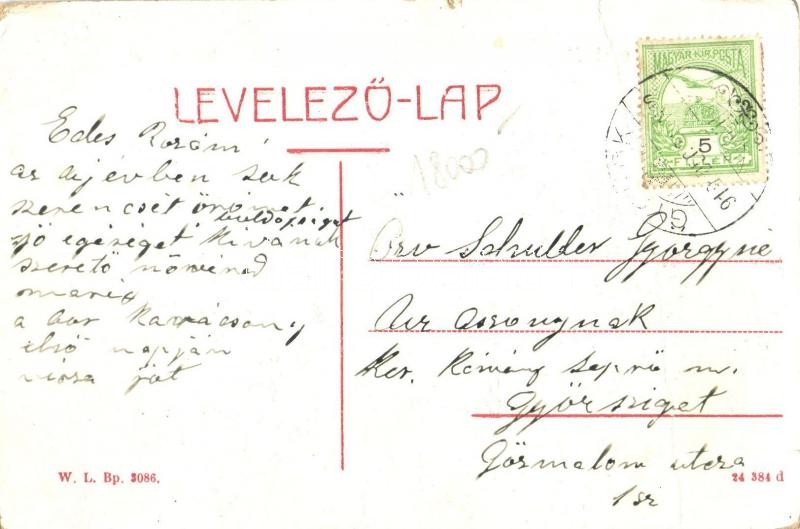 LEVELEZŐ-LAP
MAGYAR KIR. POSTA
5
FILLÉR
18000
Edes Rozám!
az ujévben sok
szerencsét örömet
boldogságot
jó egéséget kivánok
szerető nővéred
maria
a bor karácsony
első napján
vissza jöt
Özv Schulder Györgyné
Ur asszonynak
Ker. Kémény seprő m.
Győrsziget
Gőzmalom utcza
1 sz
W. L. Bp. 3086.
24 384 d